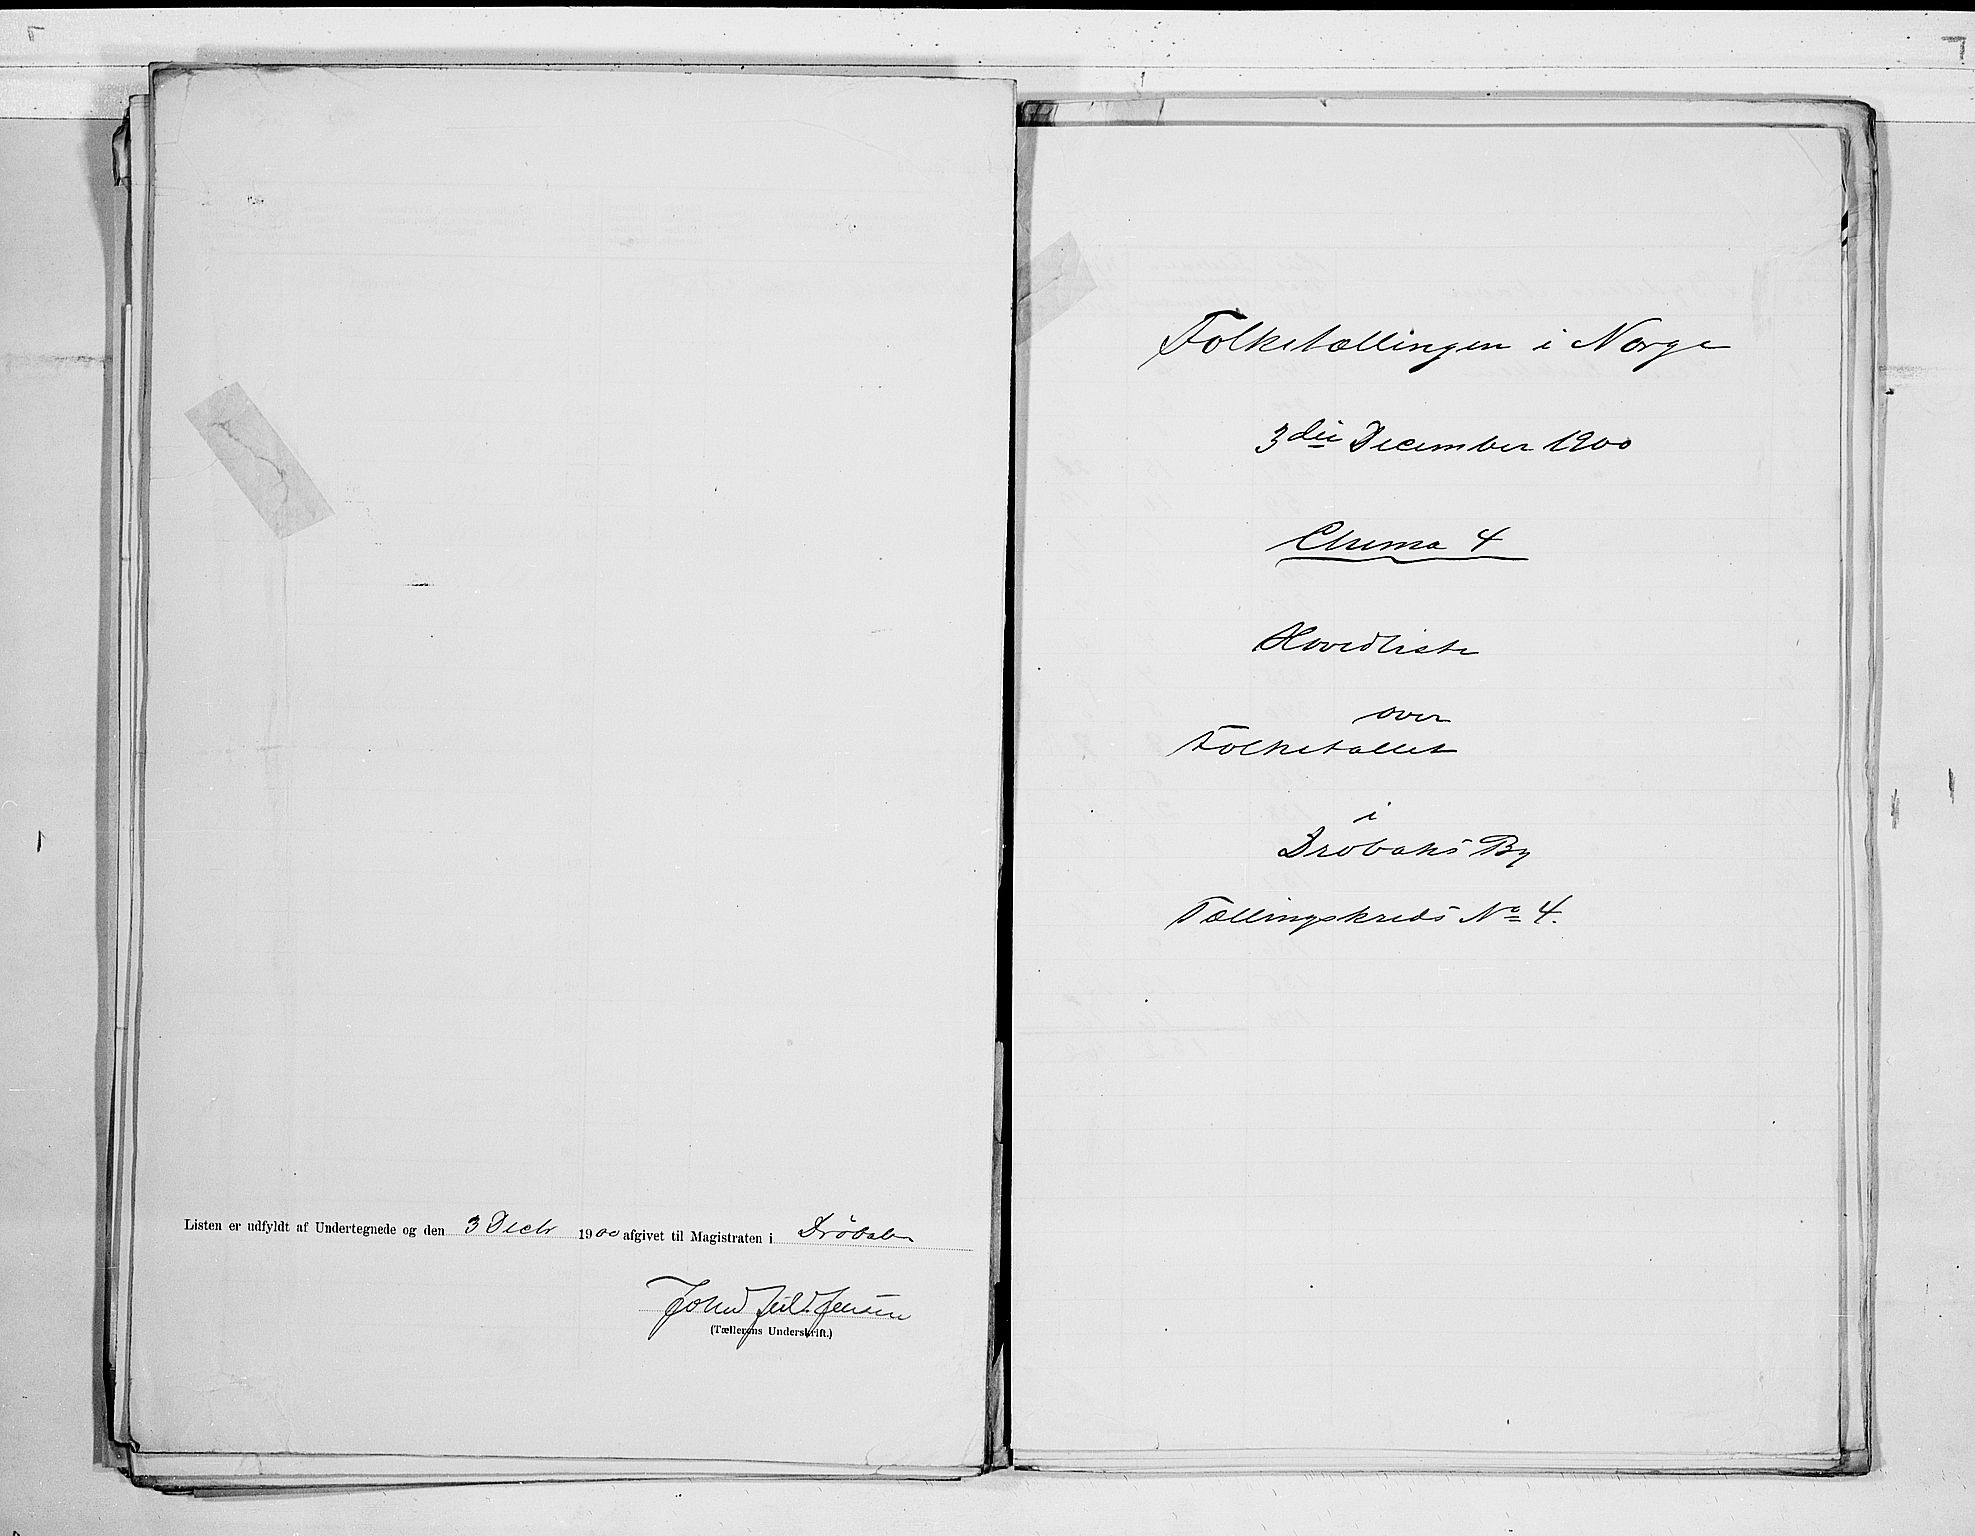 Listen er udfyldt af Undertegnede og den 3 Decbr 1900 afgivet til Magistraten i Drøbak
John Jul. Jensen
(Tællerens Underskrift.)
Folketællingen i Norge
3die December 1900
Chema 4
Hovedliste
over
Folketallet
i
Drøbaks By
Tællingskreds No 4.